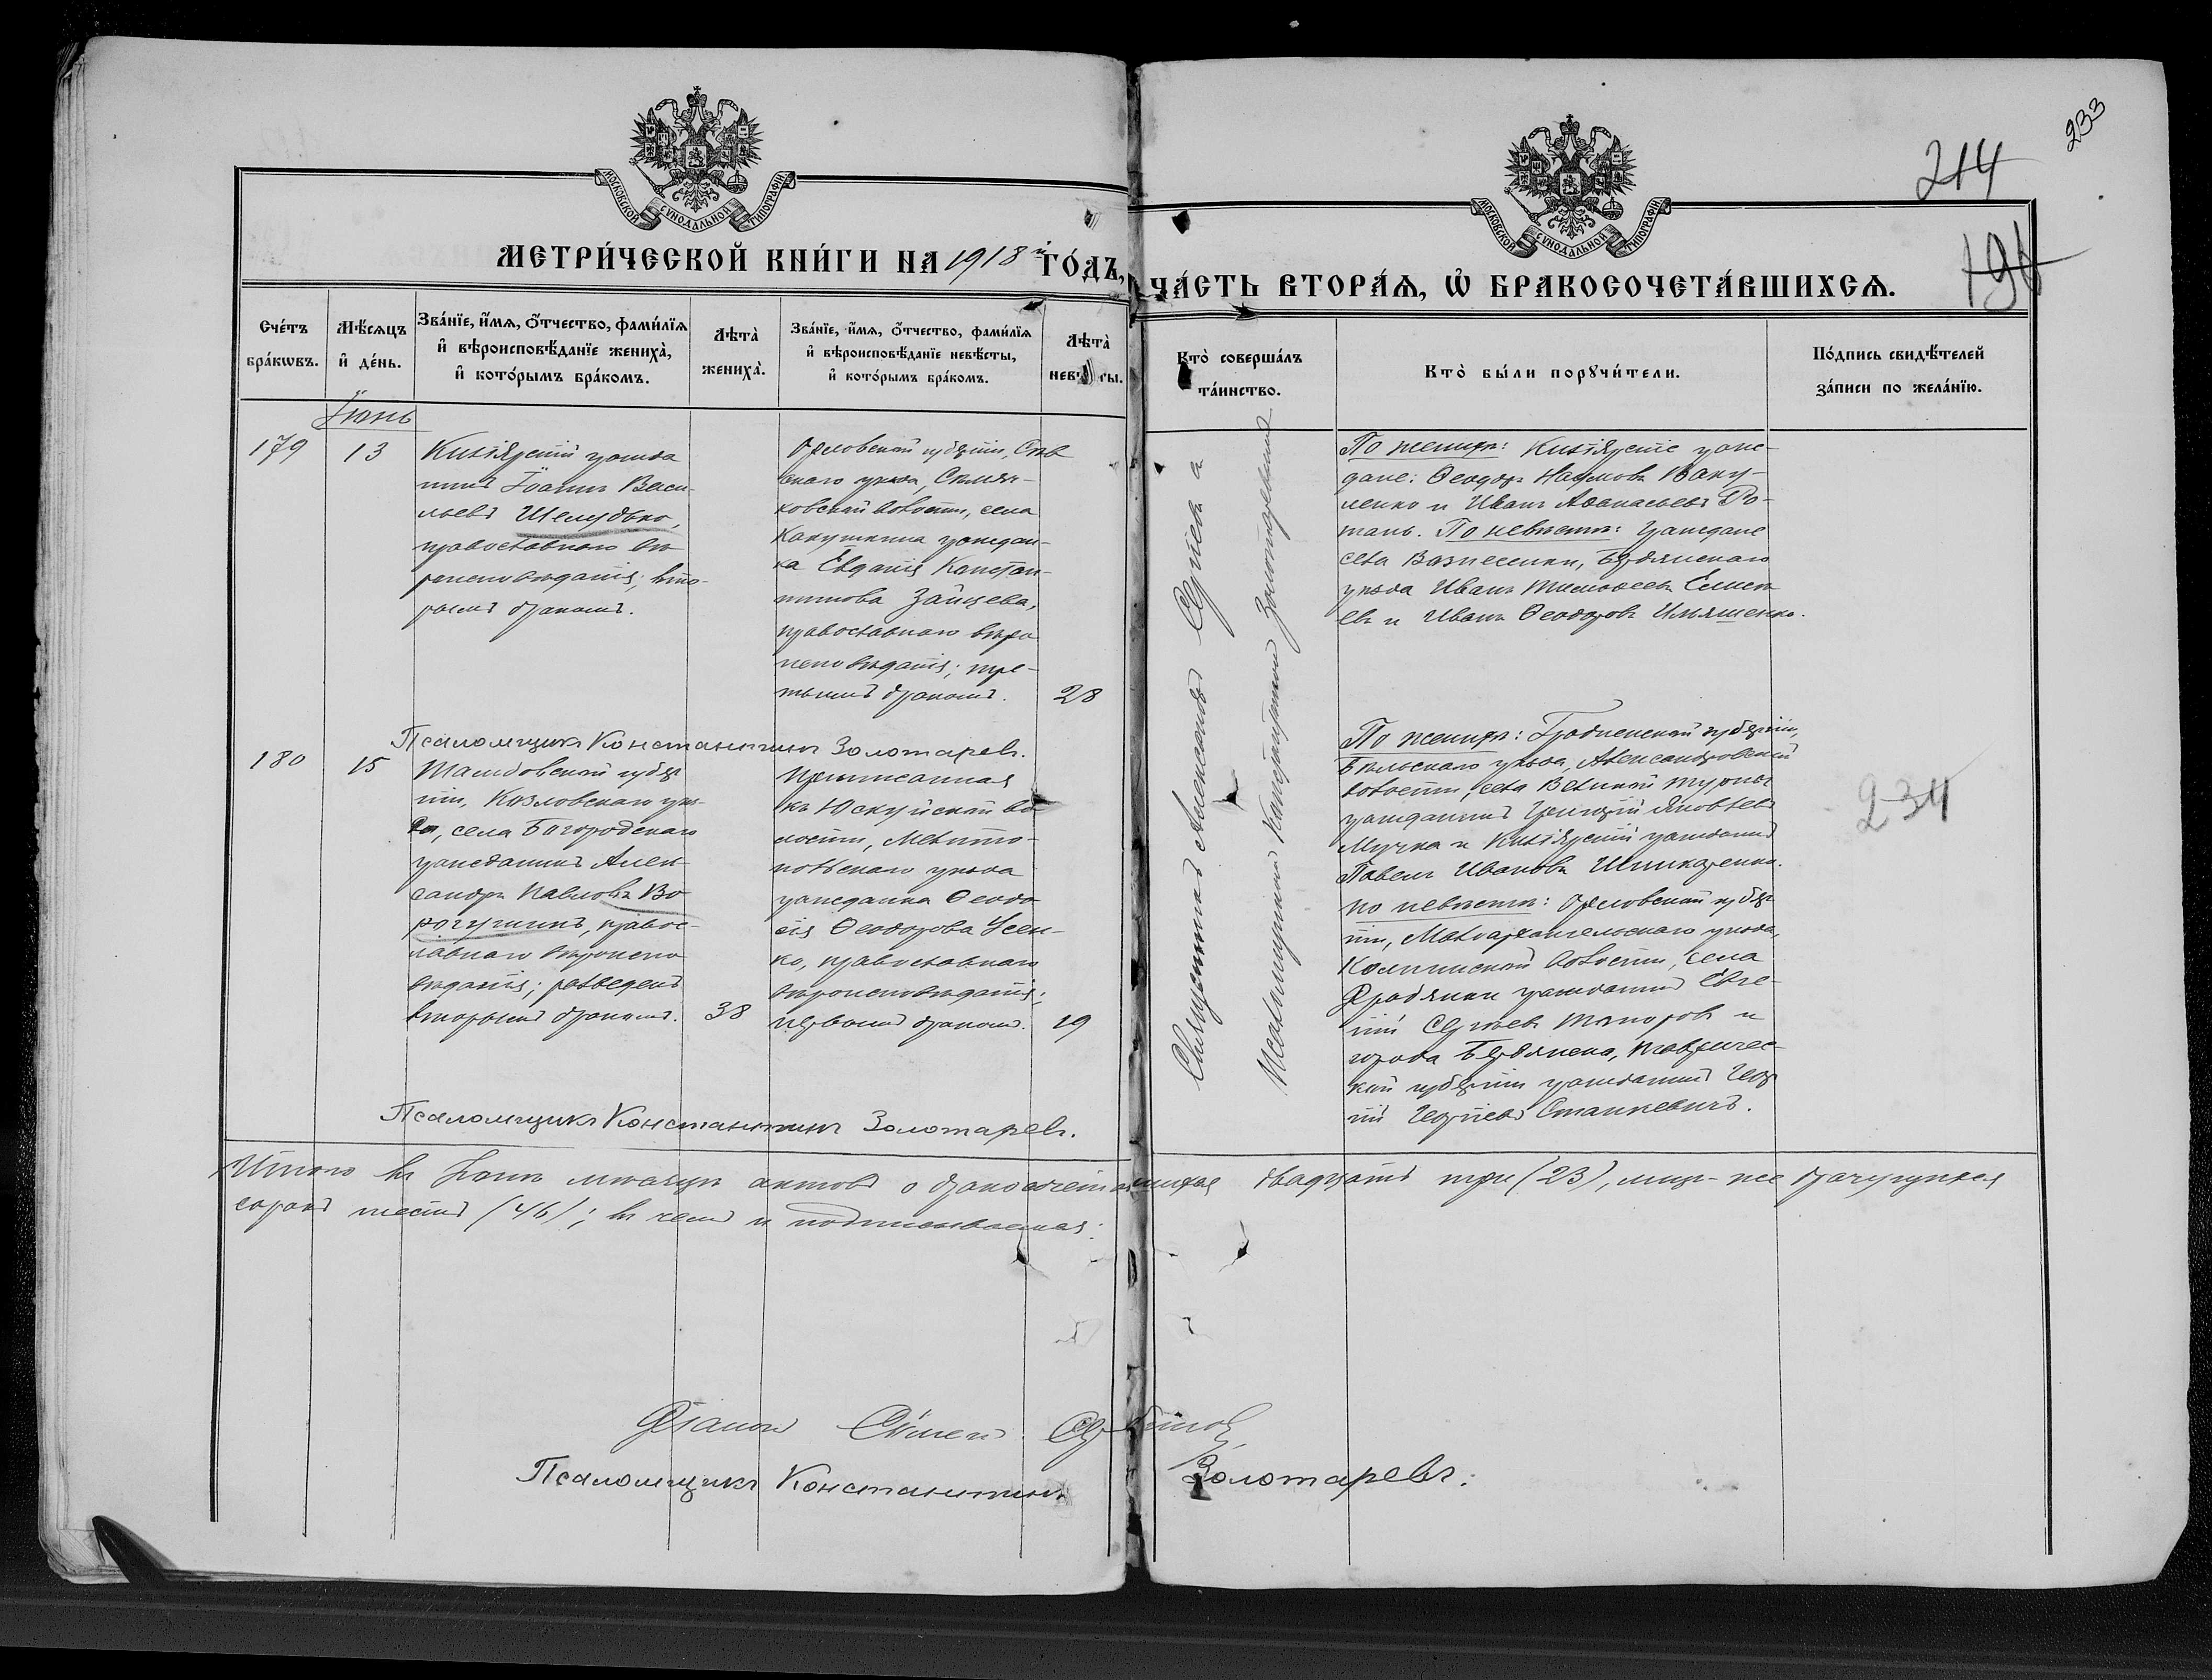 214
233
МОСКОВСКОЙ СѴНОДАЛЬНОЙ ТИПОГРАФІИ
МОСКОВСКОЙ СѴНОДАЛЬНОЙ ТИПОГРАФІИ
МЕТРИ́ЧЕСКОЙ КНИ́ГИ НА 1918й ГО́ДЪ,
ЧА́СТЬ ВТОРА́Ѧ, Ѽ БРАКОСОЧЕТА́ВШИХСѦ.
Сче́тъ бра́кѡвъ.
Мѣ́сѧцъ и҆ де́нь.
Зва́нїе, и҆́мѧ, ѻ҆́тчество, фами́лїѧ
и҆ вѣроисповѣ́данїе жениха̀,
и҆ кото́рымъ бра́комъ.
Лѣта̀ жениха̀.
Зва́нїе, и҆́мѧ, ѻ҆́тчество, фами́лїѧ
и҆ вѣроисповѣ́данїе невѣ́сты,
и҆ кото́рымъ бра́комъ.
Лѣта̀
Кто̀ соверша́лъ
та́инство.
Кто̀ бы́ли порꙋчи́тели.
По́дпись свидѣ́телей
за́писи по жела́нїю.
Іюнь
179
13
нинъ Іоаннъ Васи-
льевъ Шелудько,
православнаго вѣ-
роисповѣданія; вто-
рымъ бракомъ.
Орловской губерніи, Сѣв
скаго уѣзда,
ковской волости, села
граждан-
ка Евдокія Констан-
тинова Зайцева,
православнаго вѣро
исповѣданія; тре-
тьимъ бракомъ.
28
Священникъ Александръ Сергіевъ а
Псаломщикъ Константинъ Золотаревъ
По женихѣ: граж-
дане: Ѳеодоръ Наумовъ Ваку-
ленко и Иванъ Аѳанасьевъ По-
тань. По невѣстѣ: граждане
села Вознесенки, Бердянскаго
уѣзда Иванъ Тимоѳеевъ Елисѣ
евъ и Иванъ Ѳеодоровъ Ильяшенко.
Псаломщикъ Константинъ Золотаревъ.
180
15
Тамбовской губер
ніи, Козловскаго уѣз-
да, села Богородскаго
гражданинъ Алек-
сандръ Павловъ Во
рогушинъ, правос-
лавнаго вѣроиспо
вѣданія; разведенъ
вторымъ бракомъ.
38
Приписанная
къ Юскуйской во
лости, Мелито-
польскаго уѣзда
гражданка Ѳеодо
сія Ѳеодорова Усен-
ко, православнаго
вѣроисповѣданія;
первымъ бракомъ.
19
По женихѣ: Гродненской губерніи,
Бѣльскаго уѣзда, Александровской
волости, села Великой Турны
гражданинъ Григорій Яковлевъ
Мучка и гражданинъ
Павелъ Ивановъ Шинкаренко.
По невѣстѣ: Орловской губер
ніи, Малоархангельскаго уѣзда,
волости, села
гражданинъ Евге-
ній Сергѣевъ Топоровъ и
города Бердянска, Тавричес-
кой губерніи гражданинъ Геор
гій Георгіевъ Станкевичъ.
234
Псаломщикъ Константинъ Золотаревъ.
Итого въ Іюнѣ мѣсяцѣ актовъ о бракосочетавшихся двадцать три (23), лицъ-же брачущихся
сорокъ шесть (46); въ чемъ и подписываемся:
Діаконъ
Псаломщикъ Константинъ Золотаревъ.